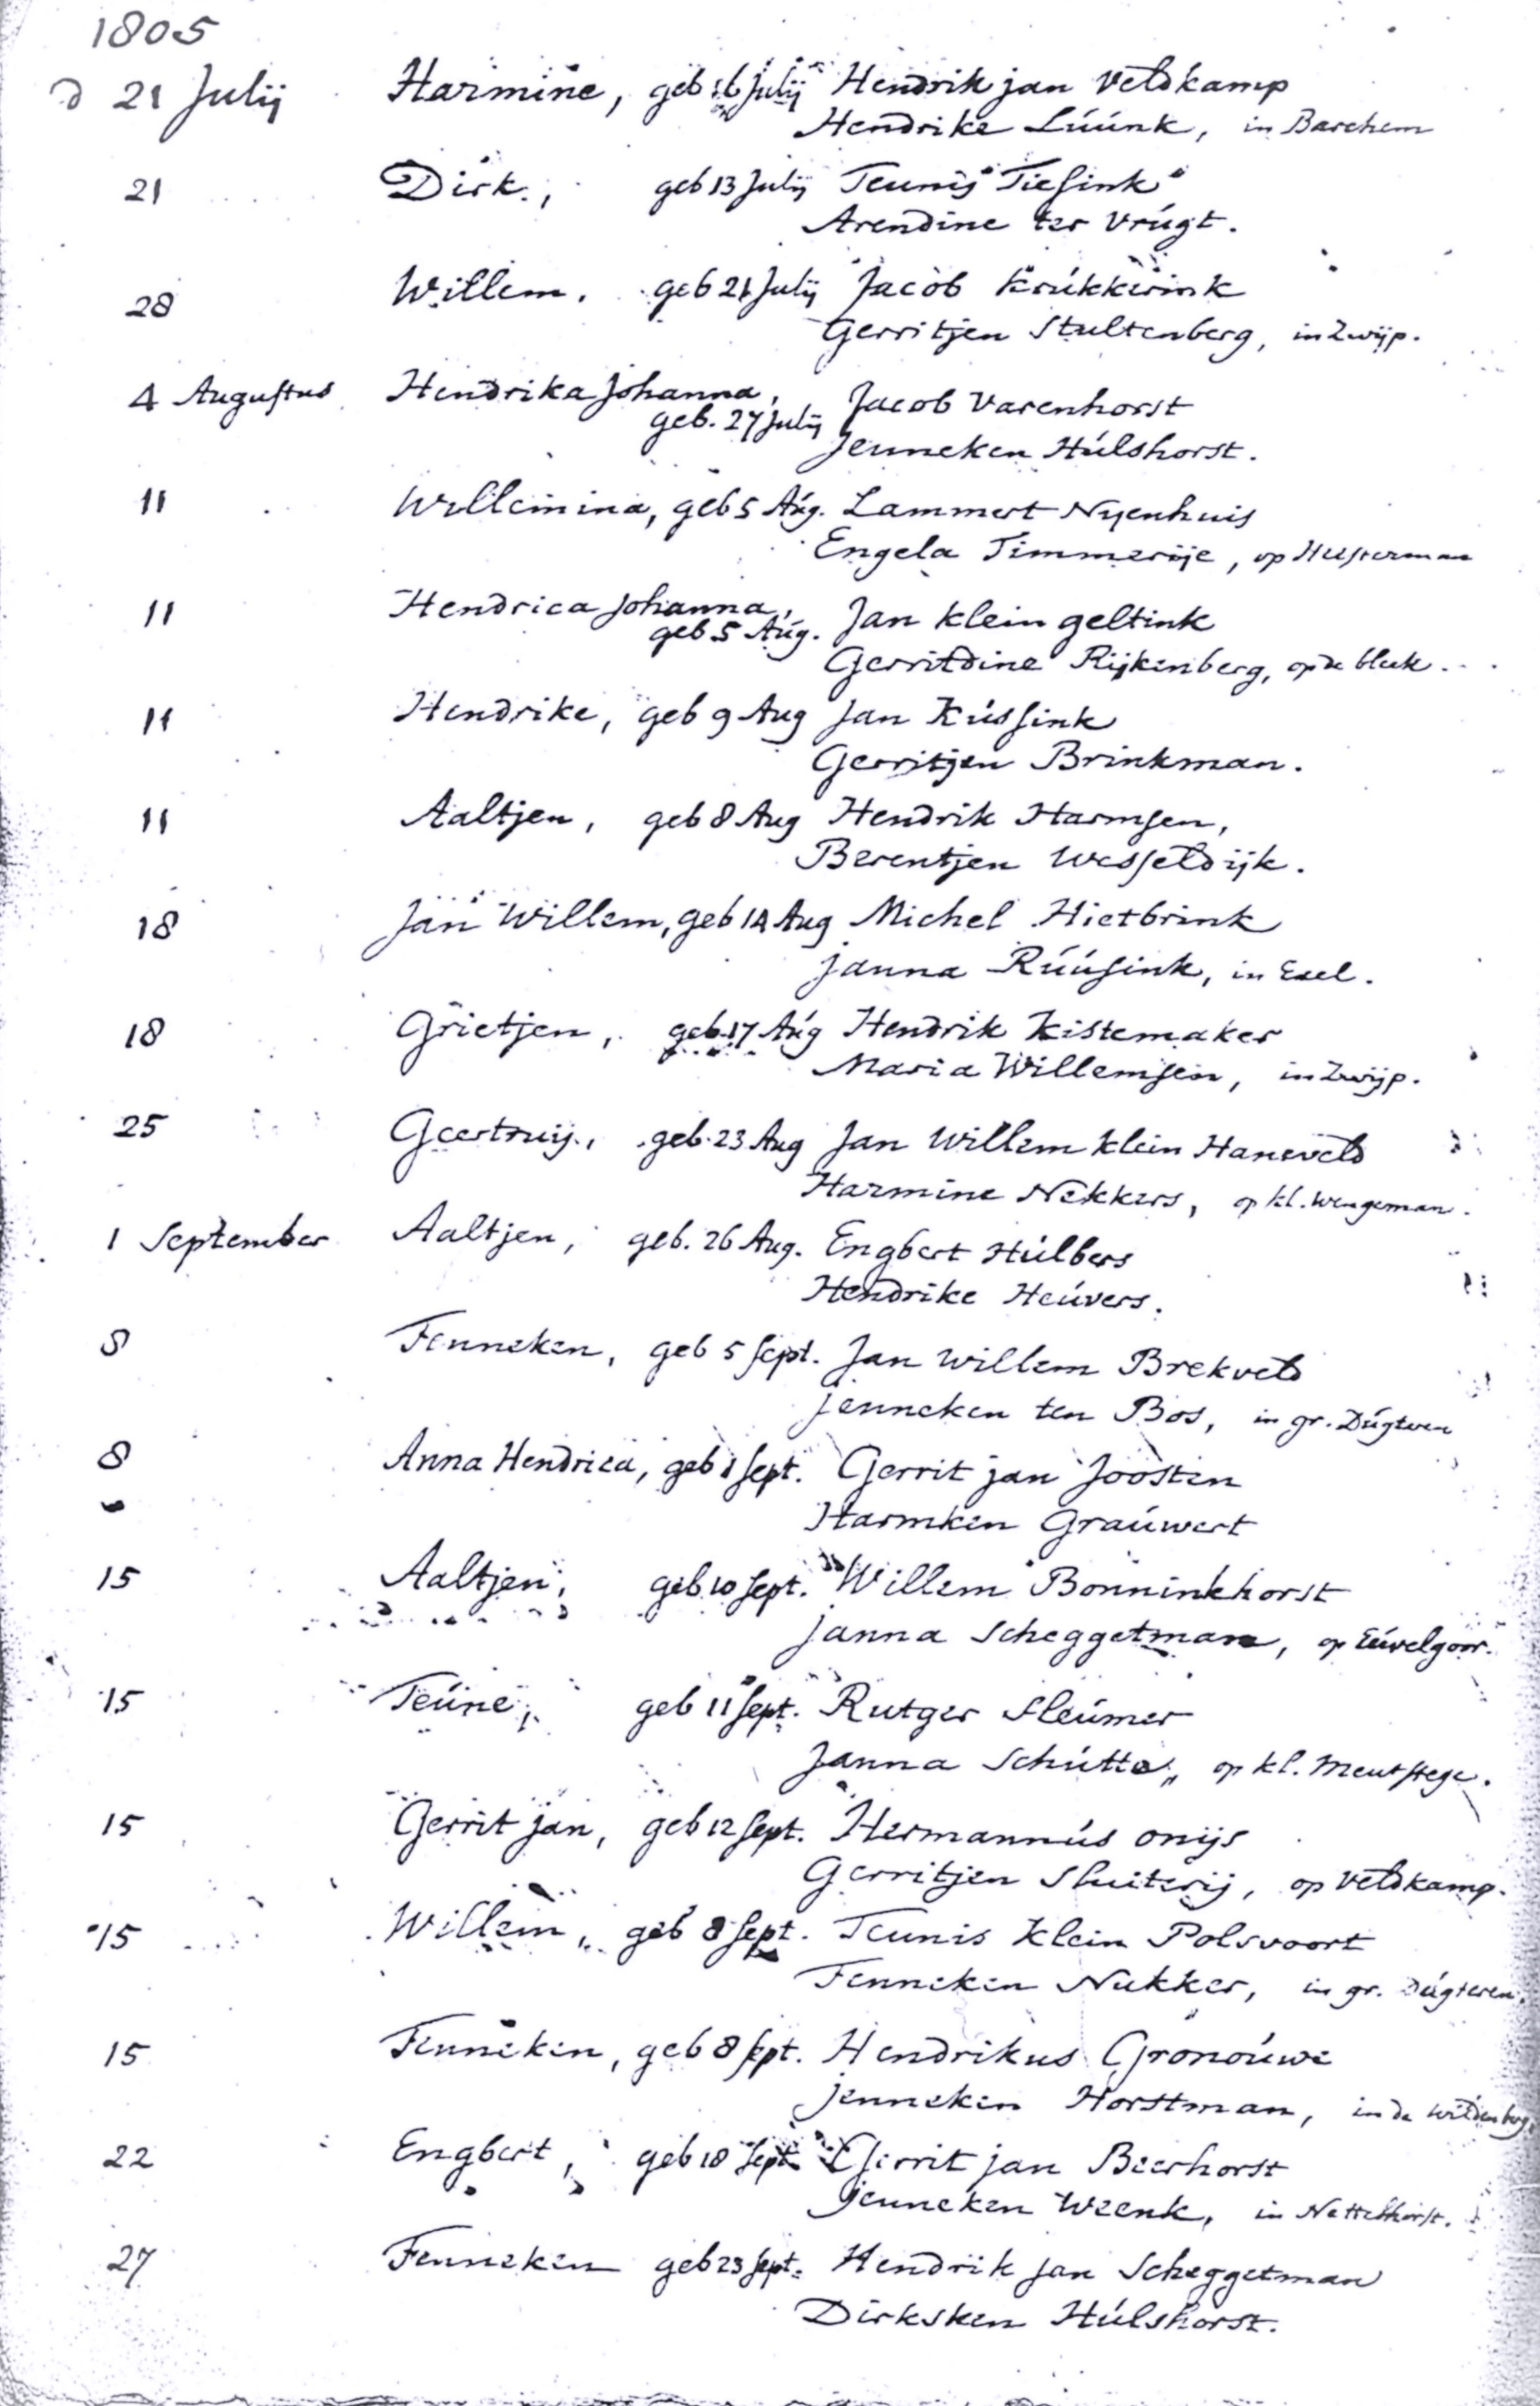 1805
d 21 Julij Harmine, geb 16 Julij Hendrik jan Veldkamp
Hendrike Lúúnk, in Barchem
21 Dirk, geb 13 Julij Teunis Tiesink
Arendine ter Vrúgt.
28 Willem, geb 21 Julij Jacob Krúkkerink
Gerritjen Stultenberg, in Zwijp.
4 Augustus Hendrika Johanna, Jacob Varenhorst
geb. 27 Julij Jenneken Húlshorst.
11 Willemina, geb 5 Aúg. Lammert Nyenhuis
Engela Timmerije, op
11 Hendrica Johanna, Jan klein geltink
geb 5 Aúg. Gerritdine Rijkenberg, op de bleek.
11 Hendrike, geb 9 Aug Jan Kússink
Gerritjen Brinkman.
11 Aaltjen, geb 8 Aug Hendrik Harmsen,
Berentjen Wesseldijk.
18 Jan Willem, geb 14 Aug Michel Hietbrink
Janna Rúúsink, in Exel.
18 Grietjen, geb. 17 Aúg Hendrik Kistemaker
Maria Willemsen, in Zwijp.
25 Geertruij, geb. 23 Aug Jan Willem klein Haneveld
Harmine Nekkers, op kl. Wengeman.
1 September Aaltjen, geb. 26 Aug. Engbert Húlbers
Hendrike Heúvers.
8 Fenneken, geb 5 sept. Jan Willem Brekveld
Jenneken ten Bos, in gr. Dúgteren
8 Anna Hendrica, geb 1 sept. Gerrit jan Joosten
Harmken Graúwert
15 Aaltjen, geb 10 sept. Willem Bonninkhorst
Janna Scheggetman, op Eúvelgoor.
15 Teúne, geb 11 sept. Rutger Sleúmer
Janna Schútte, op kl. Mentstege.
15 Gerrit jan, geb 12 sept. Hermannús onijs
Gerritjen Sluiterij, op Veldkamp.
15 Willem, geb 8 sept. Teunis Klein Polsvoort
Fenneken Nukker, in gr. Dúgteren.
15 Fenneken, geb 8 sept. Hendrikus Gronoúwe
Jenneken Horstman, in de Wildenborg,
22 Engbert, geb 18 sept. Gerrit jan Beerhorst
Jenneken Weenk, in Nettelhorst.
27 Fenneken geb 23 sept. Hendrik jan Scheggetman
Dirksken Húlshorst.